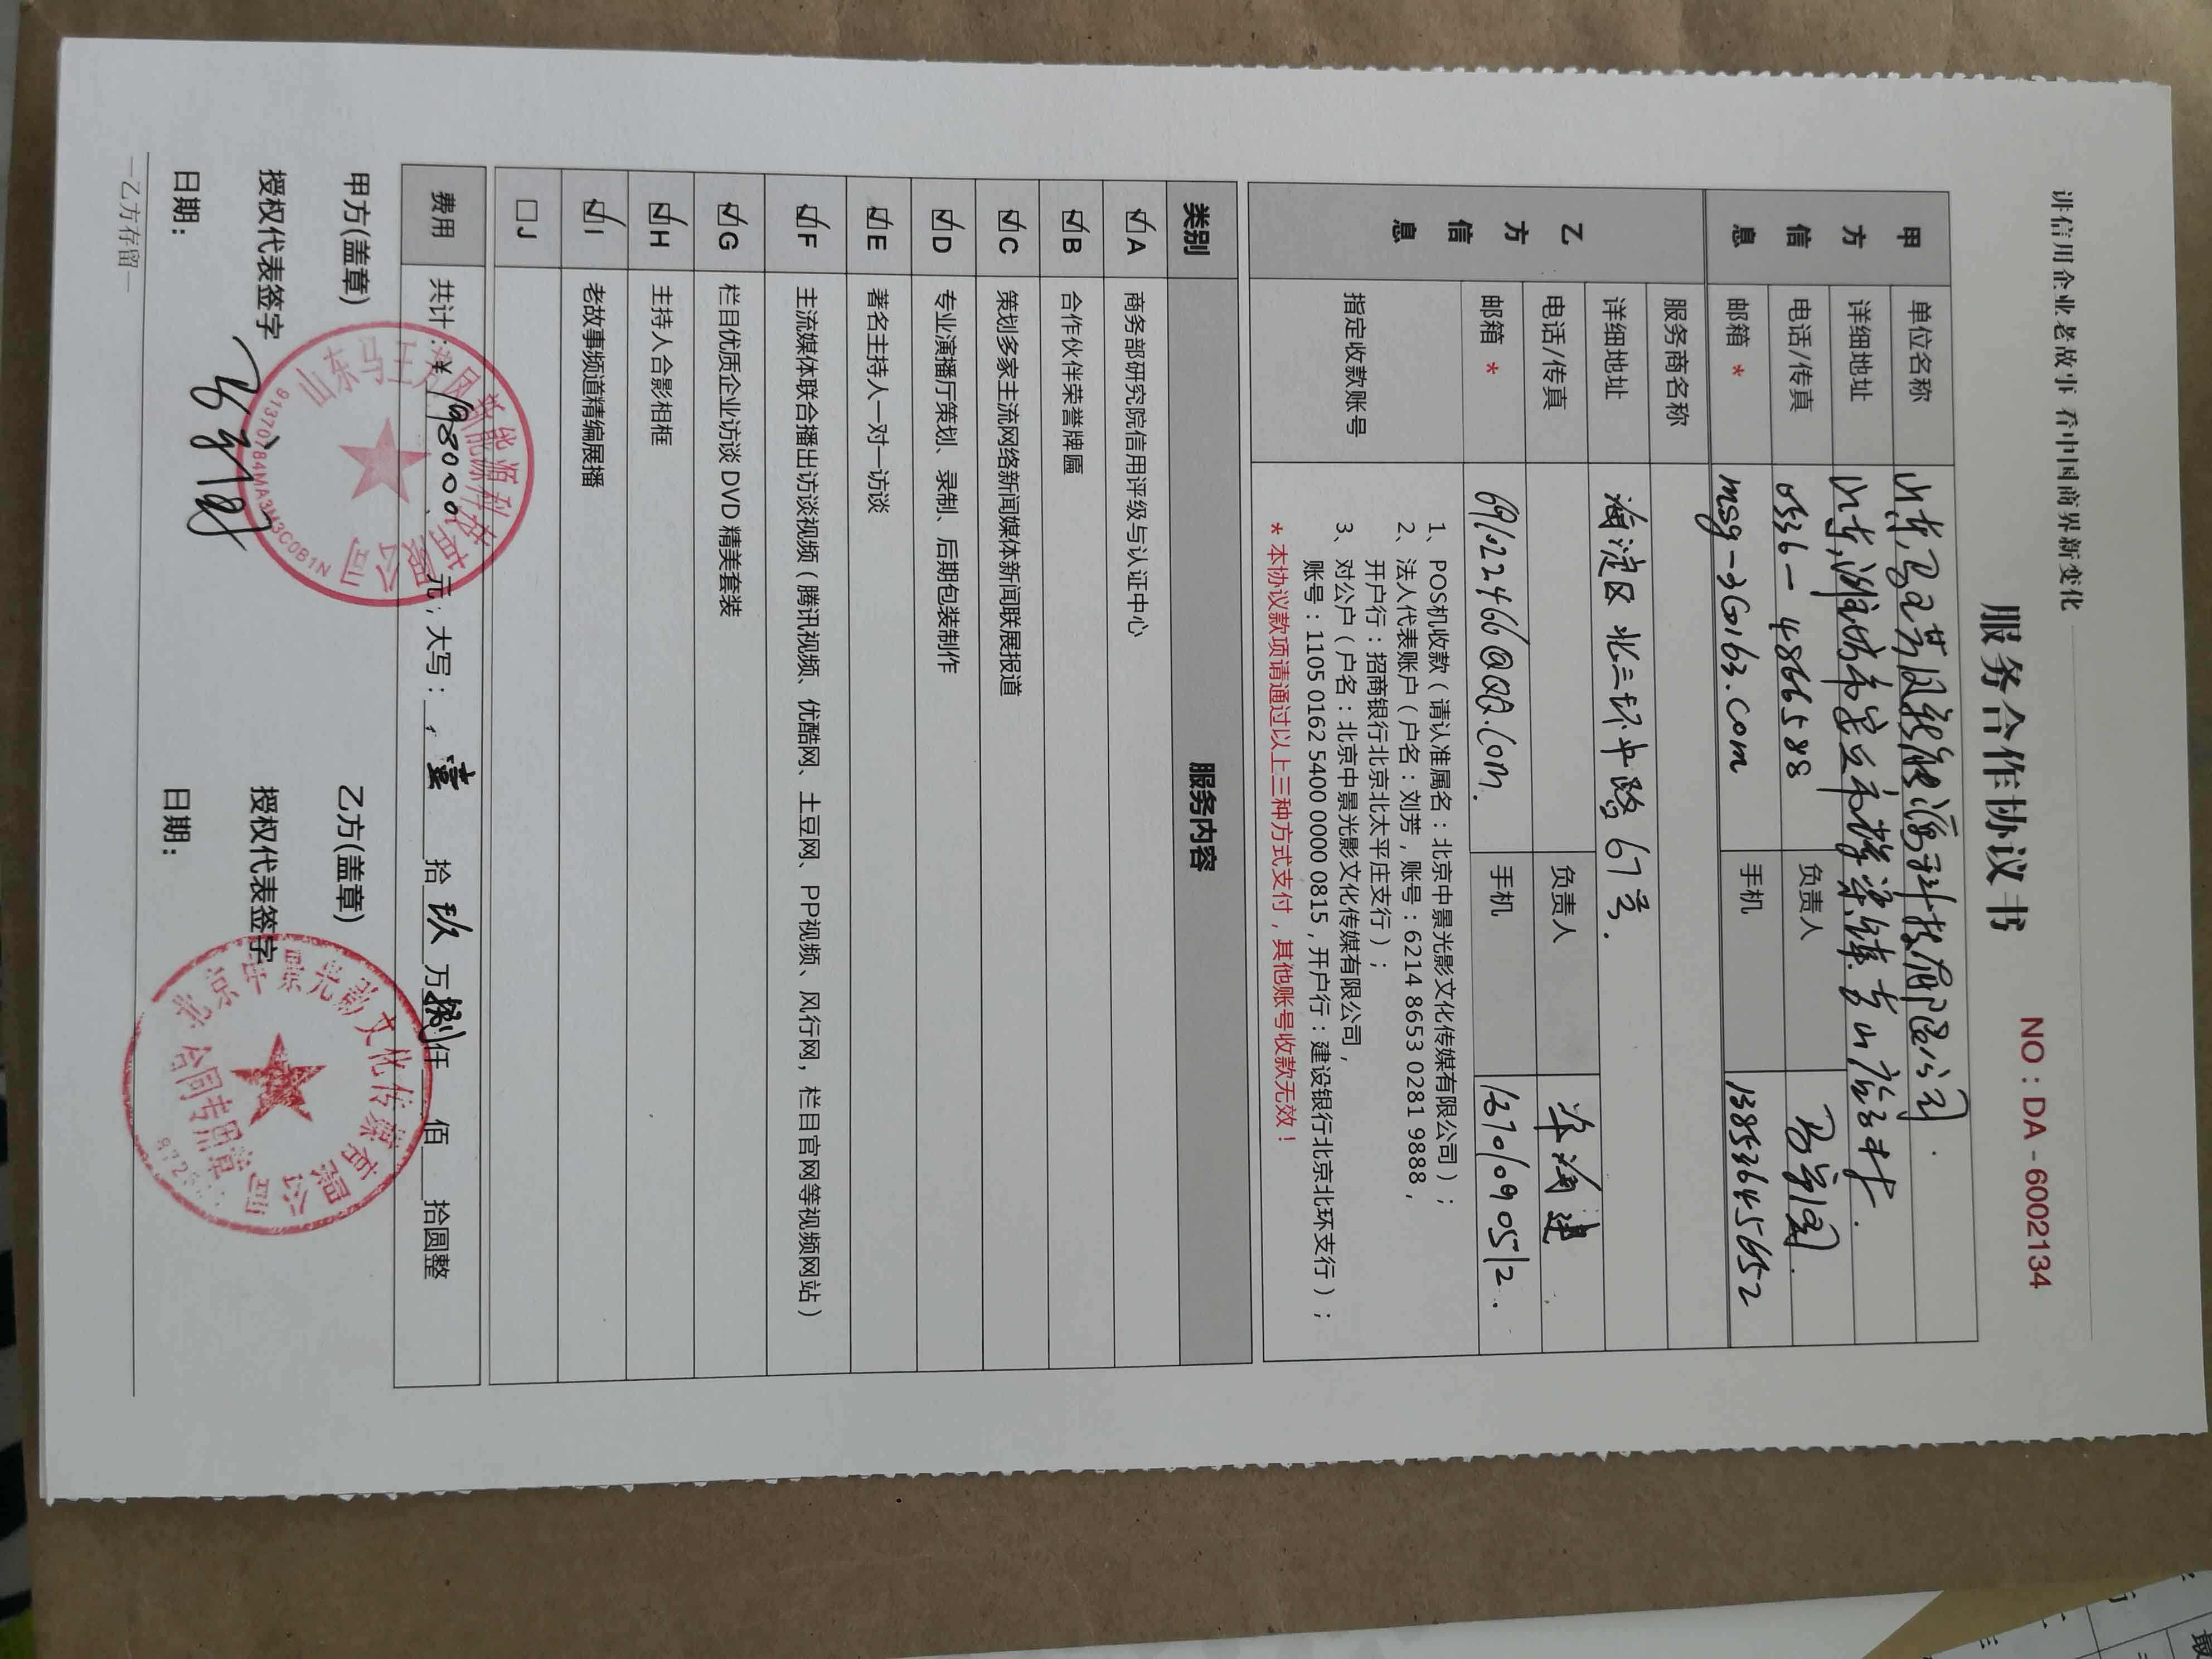 讲信用企业老故事 看中国商界新变化
NO：DA - 6002134
服务合作协议书
甲方信息
单位名称 山东马王芳风新能源科技有限公司
详细地址 山东潍坊市安丘市辉渠镇
电话/传真 0536-4866588 负责人
邮箱 * msg-3@163.com 手机 13853645652
乙方信息
服务商名称
详细地址 海淀区北三环中路67号.
电话/传真 负责人 海建
邮箱 * 691022466@QQ.com. 手机 13701090512.
指定收款账号
1、POS机收款（请认准属名：北京中景光影文化传媒有限公司）；
2、法人代表账户（户名：刘芳，账号：6214 8653 0281 9888，
开户行：招商银行北京北太平庄支行）；
3、对公户（户名：北京中景光影文化传媒有限公司，
账号：1105 0162 5400 0000 0815，开户行：建设银行北京北环支行）；
* 本协议款项请通过以上三种方式支付，其他账号收款无效！
类别 服务内容
☑A 商务部研究院信用评级与认证中心
☑B 合作伙伴荣誉牌匾
☑C 策划多家主流网络新闻媒体新闻联展报道
☑D 专业演播厅策划、录制、后期包装制作
☑E 著名主持人一对一访谈
☑F 主流媒体联合播出访谈视频（腾讯视频、优酷网、土豆网、PP视频、风行网，栏目官网等视频网站）
☑G 栏目优质企业访谈 DVD 精美套装
☑H 主持人合影相框
☑I 老故事频道精编展播
☐J
费用 共计：￥ 198000 元，大写： 壹 拾 玖 万 捌 仟 佰 拾圆整
甲方(盖章)
山东马王芳风新能源科技有限公司
91370784MA3N3C0B1N
乙方(盖章)
北京中景光影文化传媒有限公司
合同专用章
授权代表签字
授权代表签字
日期：
日期：
—乙方存留—